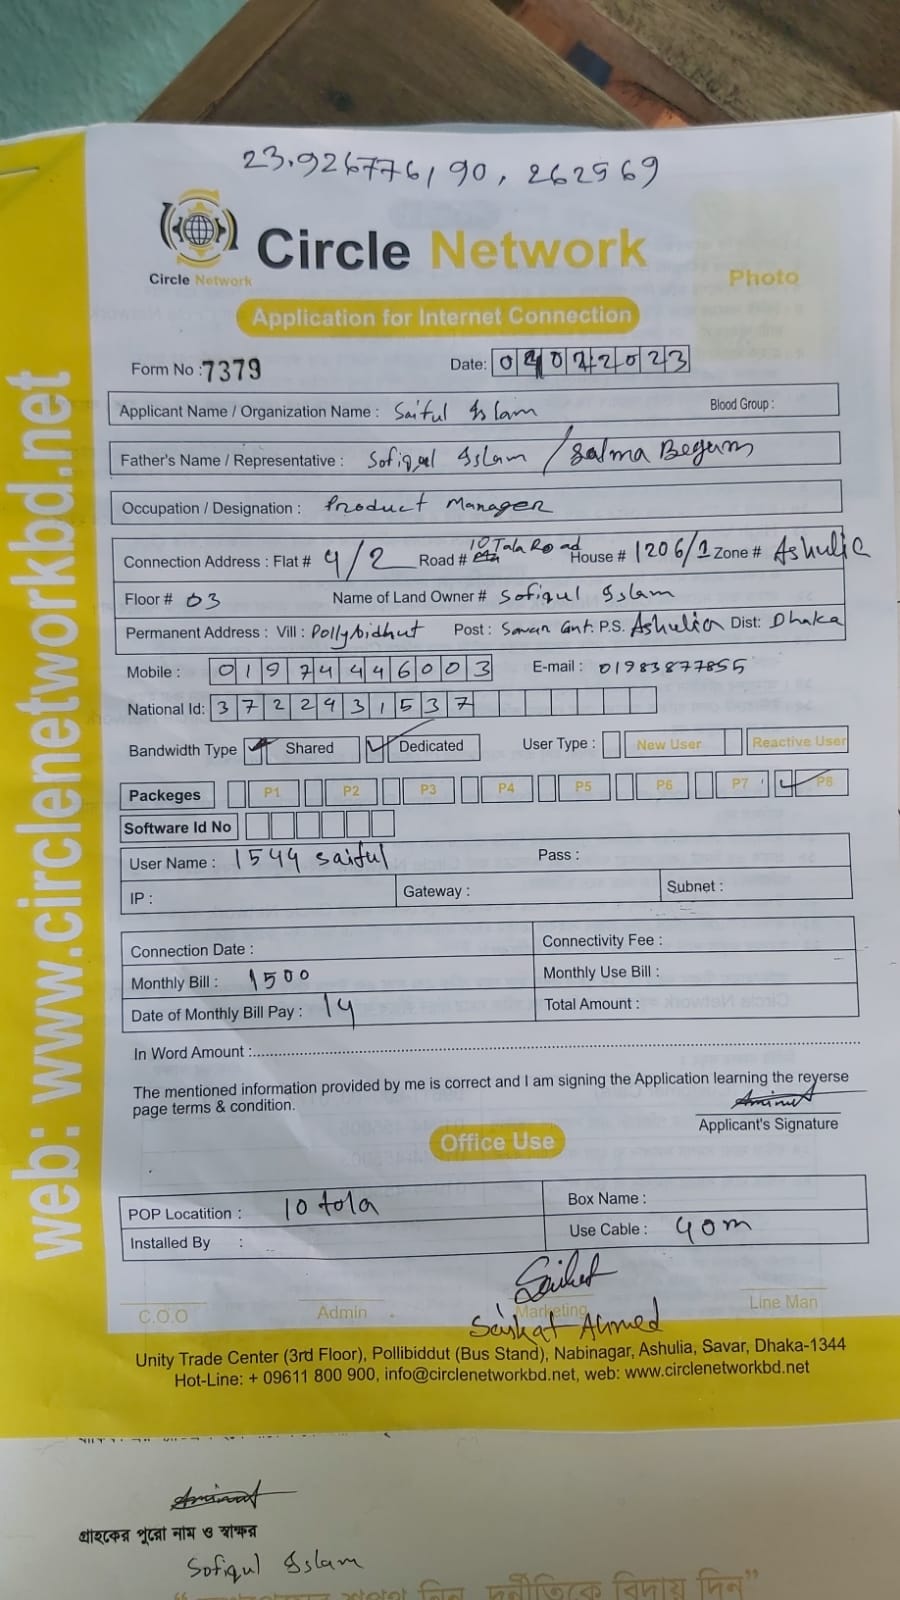 23.926776, 90.262569
Circle Network
Circle Network
Photo
Application for Internet Connection
Form No :7379 Date: 04022023
Applicant Name / Organization Name : Saiful Islam Blood Group :
Father's Name / Representative : Sofiqul Islam / Salma Begum
Occupation / Designation : Product Manager
Connection Address : Flat # 4/2 Road # 10 Tala Road House # 1206/1 Zone # Ashulia
Floor # 03 Name of Land Owner # Sofiqul Islam
Permanent Address : Vill : Pollybidhut Post : Savar Cant. P.S. Ashulia Dist: Dhaka
Mobile : 01974446003 E-mail : 01983877855
National Id: 3722431537
Bandwidth Type Shared Dedicated User Type : New User Reactive User
Packeges P1 P2 P3 P4 P5 P6 P7 P8
Software Id No
User Name : 1544 saiful Pass :
IP : Gateway : Subnet :
Connection Date : Connectivity Fee :
Monthly Bill : 1500 Monthly Use Bill :
Date of Monthly Bill Pay : 14 Total Amount :
In Word Amount :
The mentioned information provided by me is correct and I am signing the Application learning the reverse
page terms & condition.
Applicant's Signature
Office Use
POP Locatition : 10 tola Box Name :
Installed By : Use Cable : 40m
C.O.O Admin Marketing Line Man
Saikat Ahmed
Unity Trade Center (3rd Floor), Pollibiddut (Bus Stand), Nabinagar, Ashulia, Savar, Dhaka-1344
Hot-Line: + 09611 800 900, info@circlenetworkbd.net, web: www.circlenetworkbd.net
web: www.circlenetworkbd.net
গ্রাহকের পুরো নাম ও স্বাক্ষর
Sofiqul Islam
নিন, দুর্নীতিকে বিদায় দিন"